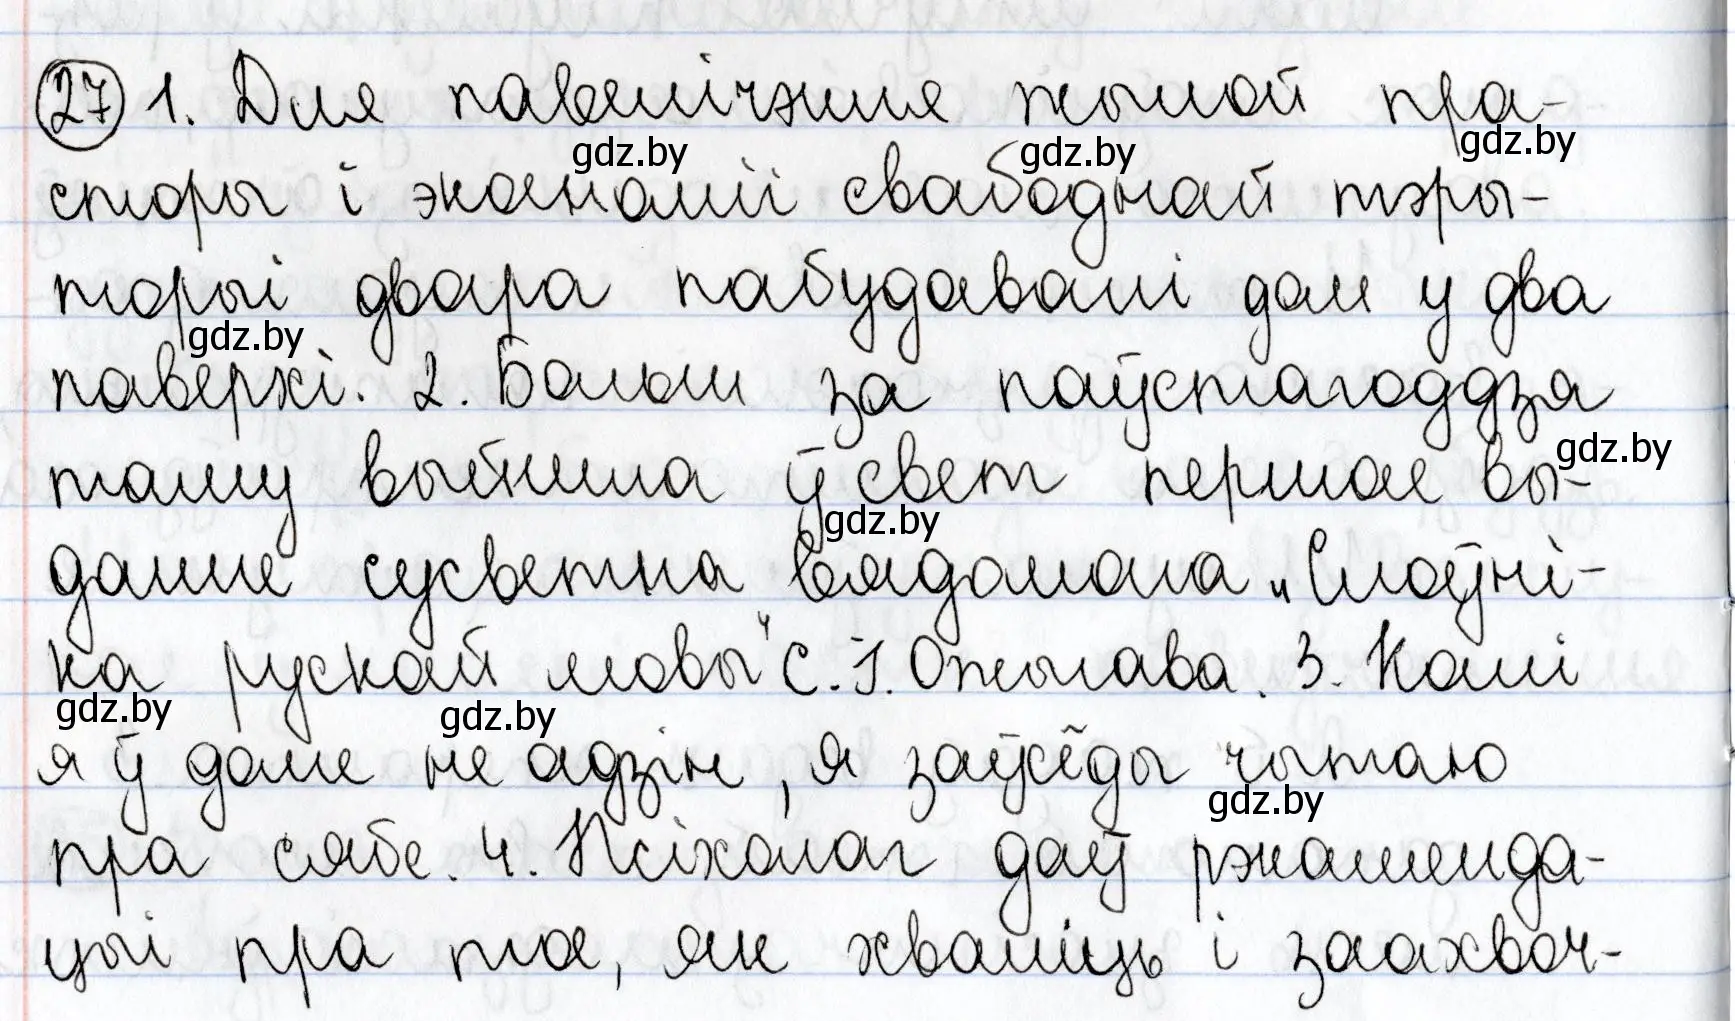 27 1. Для павелічэння жылой пра-
сторы і эканоміі свабоднай тэры-
торыі двара пабудавалі дом у два
паверхі. 2. Больш за паўстагоддзя
таму выйшла ў свет першае вы-
данне сусветна вядомага „Слоўні-
ка рускай мовы“ С. І. Ожыгава. 3. Калі
я ў доме не адзін, я заўсёды чытаю
пра сябе. 4. Псіхолаг даў рэкаменда-
цыі пра тое, як хваліць і заахвоч-
gdz.by
gdz.by
gdz.by
gdz.by
gdz.by
gdz.by
gdz.by
gdz.by
gdz.by